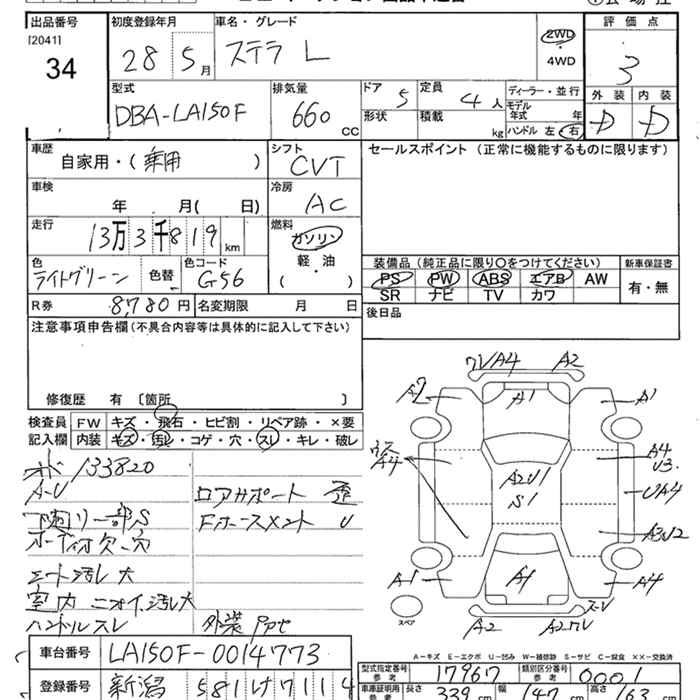 出品番号
[2041]
34
初度登録年月
28 5月
車名・グレード
ステラ L
2WD
・
4WD
評価点
3
外装 内装
D D
型式
DBA-LA150F
排気量
660 cc
ドア 5
定員 4人
形状
積載 kg
ディーラー・並行
モデル年式 年
ハンドル 左 右
車歴
自家用・(乗用)
シフト
CVT
セールスポイント (正常に機能するものに限ります)
車検
年 月( 日)
冷房
AC
走行
13万3千819 km
燃料
ガソリン
軽・油
( )
色
ライトグリーン
色替
色コード
G56
装備品(純正品に限り○をつけてください)
新車保証書
PS PW ABS エアB AW
SR ナビ TV カワ
有・無
R券 8,780円
名変期限 月 日
後日品
注意事項申告欄(不具合内容等は具体的に記入して下さい)
修復歴 有 〔箇所 〕
検査員 FW キズ・飛石・ヒビ割・リペア跡・×要
記入欄 内装 キズ・汚レ・コゲ・穴・スレ・キレ・破レ
133820
A-U
ロアサポート 歪
リー部S
U
シート汚レ大
室内ニオイ、汚レ大
ハンドルスレ
外装
A4 A2
A1
A1
A4
U3
A4
A2U1
S1
UA4
A3U2
A1
A1
A4
A2
スペア
A-キズ E-エクボ U-凹み W-補修跡 S-サビ C-腐食 ××-交換済
車台番号 LA150F-0014773
型式指定番号 参考 17967
類別区分番号 参考 0001
登録番号 新潟 581 け7114
車庫証明用 参考 長さ 339 cm 幅 147 cm 高さ 163 cm